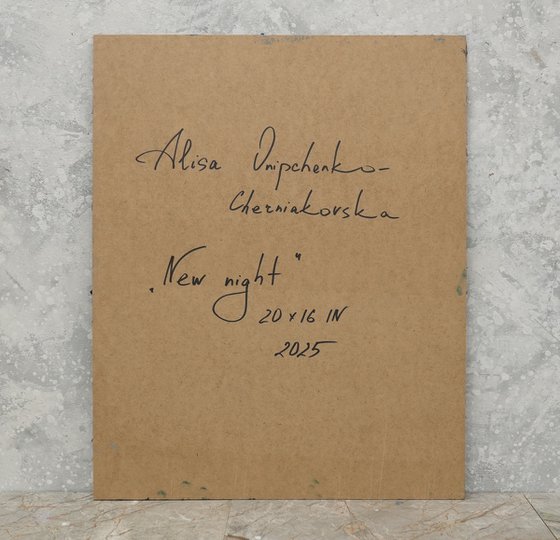 Alisa Onipchenko-
Cherniakovska
„New night"
20 x 16 IN
2025